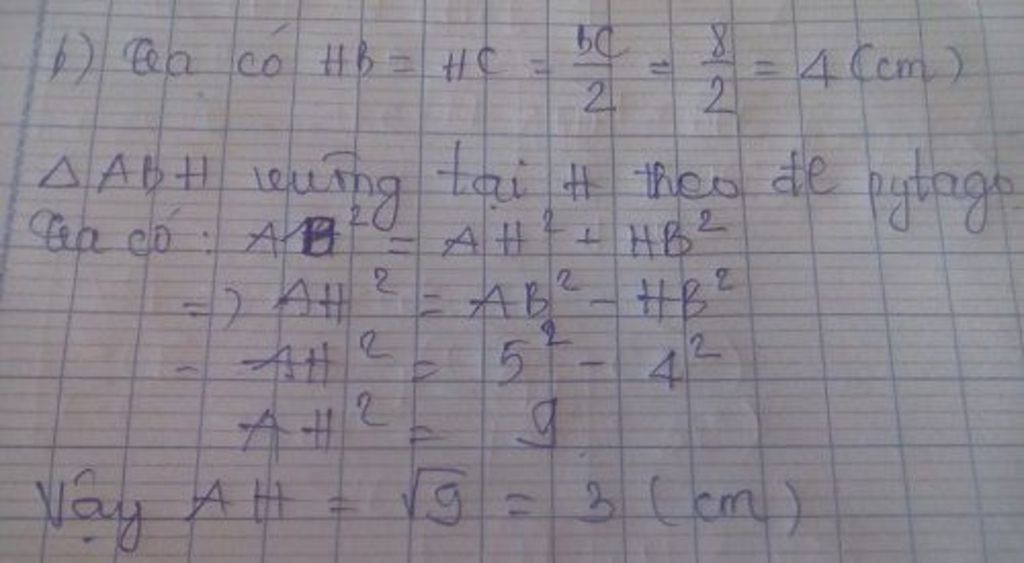 b) Ta có HB = HC = BC/2 = 8/2 = 4 (cm)
Δ ABH vuông tại H theo đl pytago
Ta có: AB² = AH² + HB²
=) AH² = AB² - HB²
- AH² = 5² - 4²
AH² = 9
Vậy AH = √9 = 3 (cm)